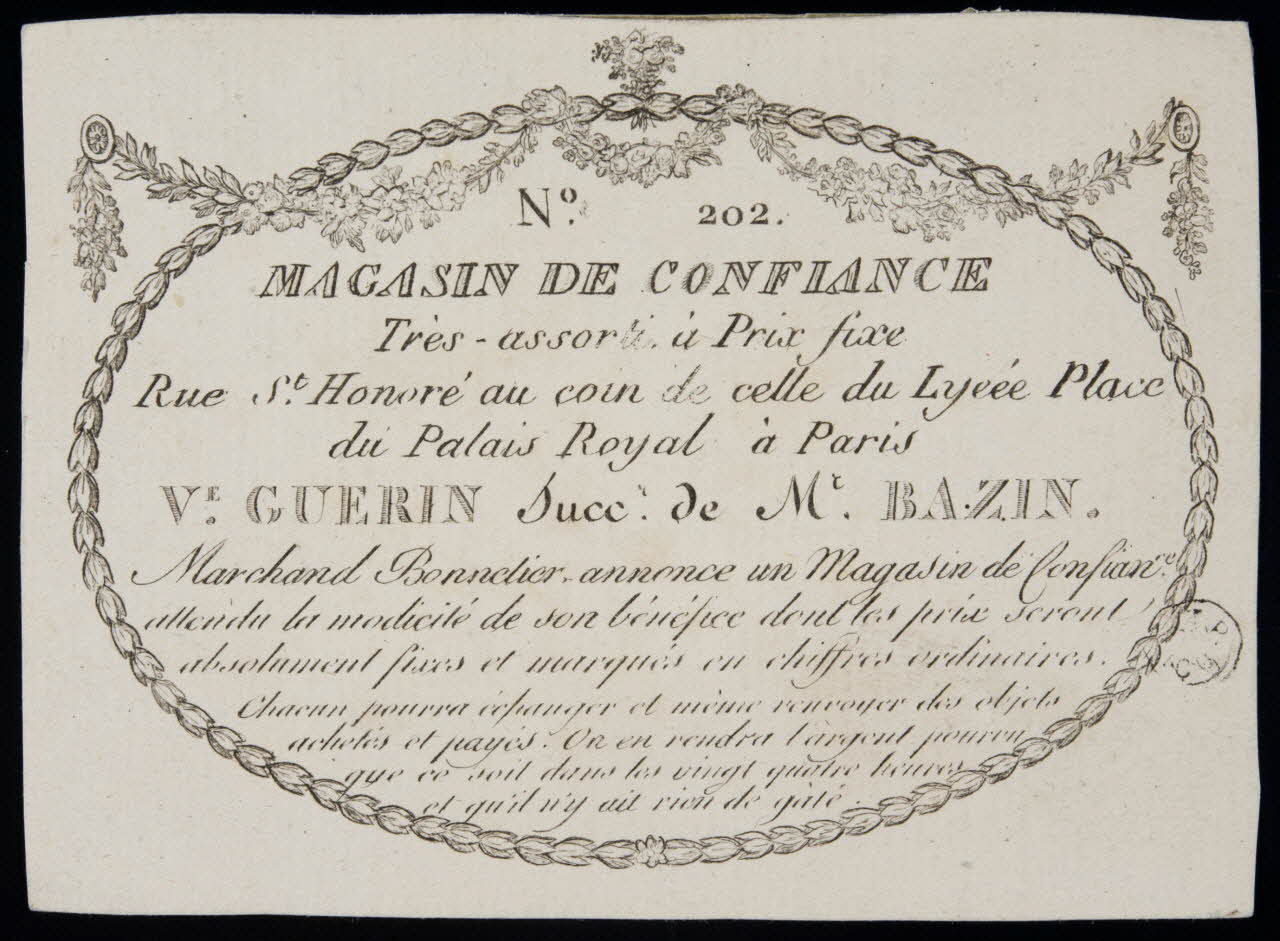 N.º 202.
MAGASIN DE CONFIANCE
Très-assorti à Prix fixe
Rue S.t Honoré au coin de celle du Lycée Place
du Palais Royal à Paris
V.E GUERIN Succ.r de M.r BAZIN.
Marchand Bonnetier annonce un Magasin de Confian.ce
attendu la modicité de son bénéfice dont les prix seront
absolument fixes et marqués en chiffres ordinaires.
Chacun pourra échanger et même renvoyer des objets
achetés et payés. On en rendra l'argent pourvu
que ce soit dans les vingt quatre heures
et qu'il n'y ait rien de gâté.